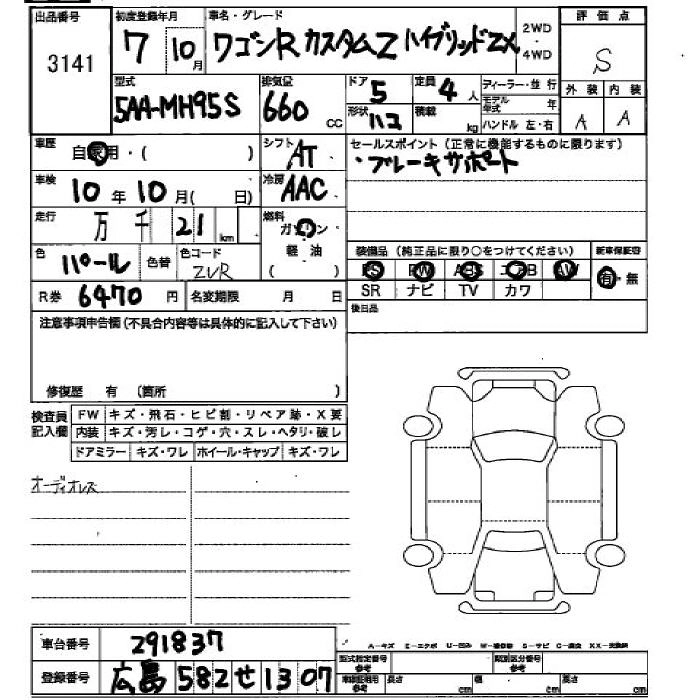 出品番号 初度登録年月 車名・グレード 2WD・4WD 評価点
3141 7 10月 ワゴンR カスタムZ ハイブリッドZX S
型式 排気量 ドア 5 定員 4人 ディーラー・並行 外装 内装
5AA-MH95S 660 CC 形状 ハコ 積載 kg モデル年式 年 A A
ハンドル 左・右
車歴 自家用・( ) シフト AT セールスポイント(正常に機能するものに限ります)
・ブレーキサポート
車検 10年10月( 日) 冷房 AAC
走行 万 千 21 km 燃料 ガソリン
軽油
( )
色 パール 色替 色コード ZVR
装備品(純正品に限り○をつけてください) 新車保証書
PS PW ABS エアB AW 有・無
SR ナビ TV カワ
R券 6470 円 名変期限 月 日
後日品
注意事項申告欄(不具合内容等は具体的に記入して下さい)
修復歴 有 (箇所 )
検査員記入欄 FW キズ・飛石・ヒビ割・リペア跡・X要
内装 キズ・汚レ・コゲ・穴・スレ・ヘタリ・破レ
ドアミラー キズ・ワレ ホイール・キャップ キズ・ワレ
オーディオレス
車台番号 291837
A-キズ E-エクボ U-凹み W-補修跡 S-サビ C-腐食 XX-交換済
登録番号 広島 582 せ 1307
型式指定番号 参考 類別区分番号 参考
車検証明用 参考 長さ cm 幅 cm 高さ cm